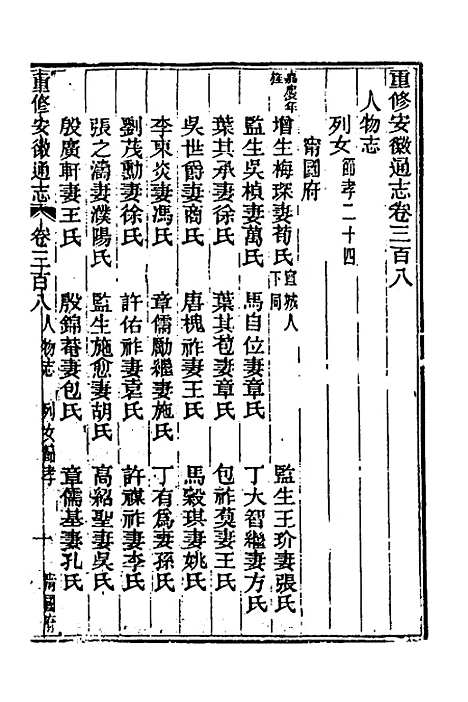 重修安徽通志卷三百八
人物志
列女節孝二十四
甯國府
嘉慶年旌 增生梅琛妻荀氏宣城人下同 監生王玠妻張氏
監生吳楨妻萬氏 馬自位妻章氏 丁大智繼妻方氏
葉其承妻徐氏 葉其苞妻章氏 包祚蓂妻王氏
吳世爵妻商氏 唐槐祚妻王氏 馬毅琪妻姚氏
李東炎妻馮氏 章儒勵繼妻施氏 丁有爲妻孫氏
劉茂勳妻徐氏 許佑祚妻袁氏 許祺祚妻李氏
張之濤妻濮陽氏 監生施愈妻胡氏 高紹聖妻吳氏
殷廣軒妻王氏 殷錦菴妻包氏 章儒基妻孔氏
重修安徽通志 卷三百八 人物志 列女節孝 一 甯國府